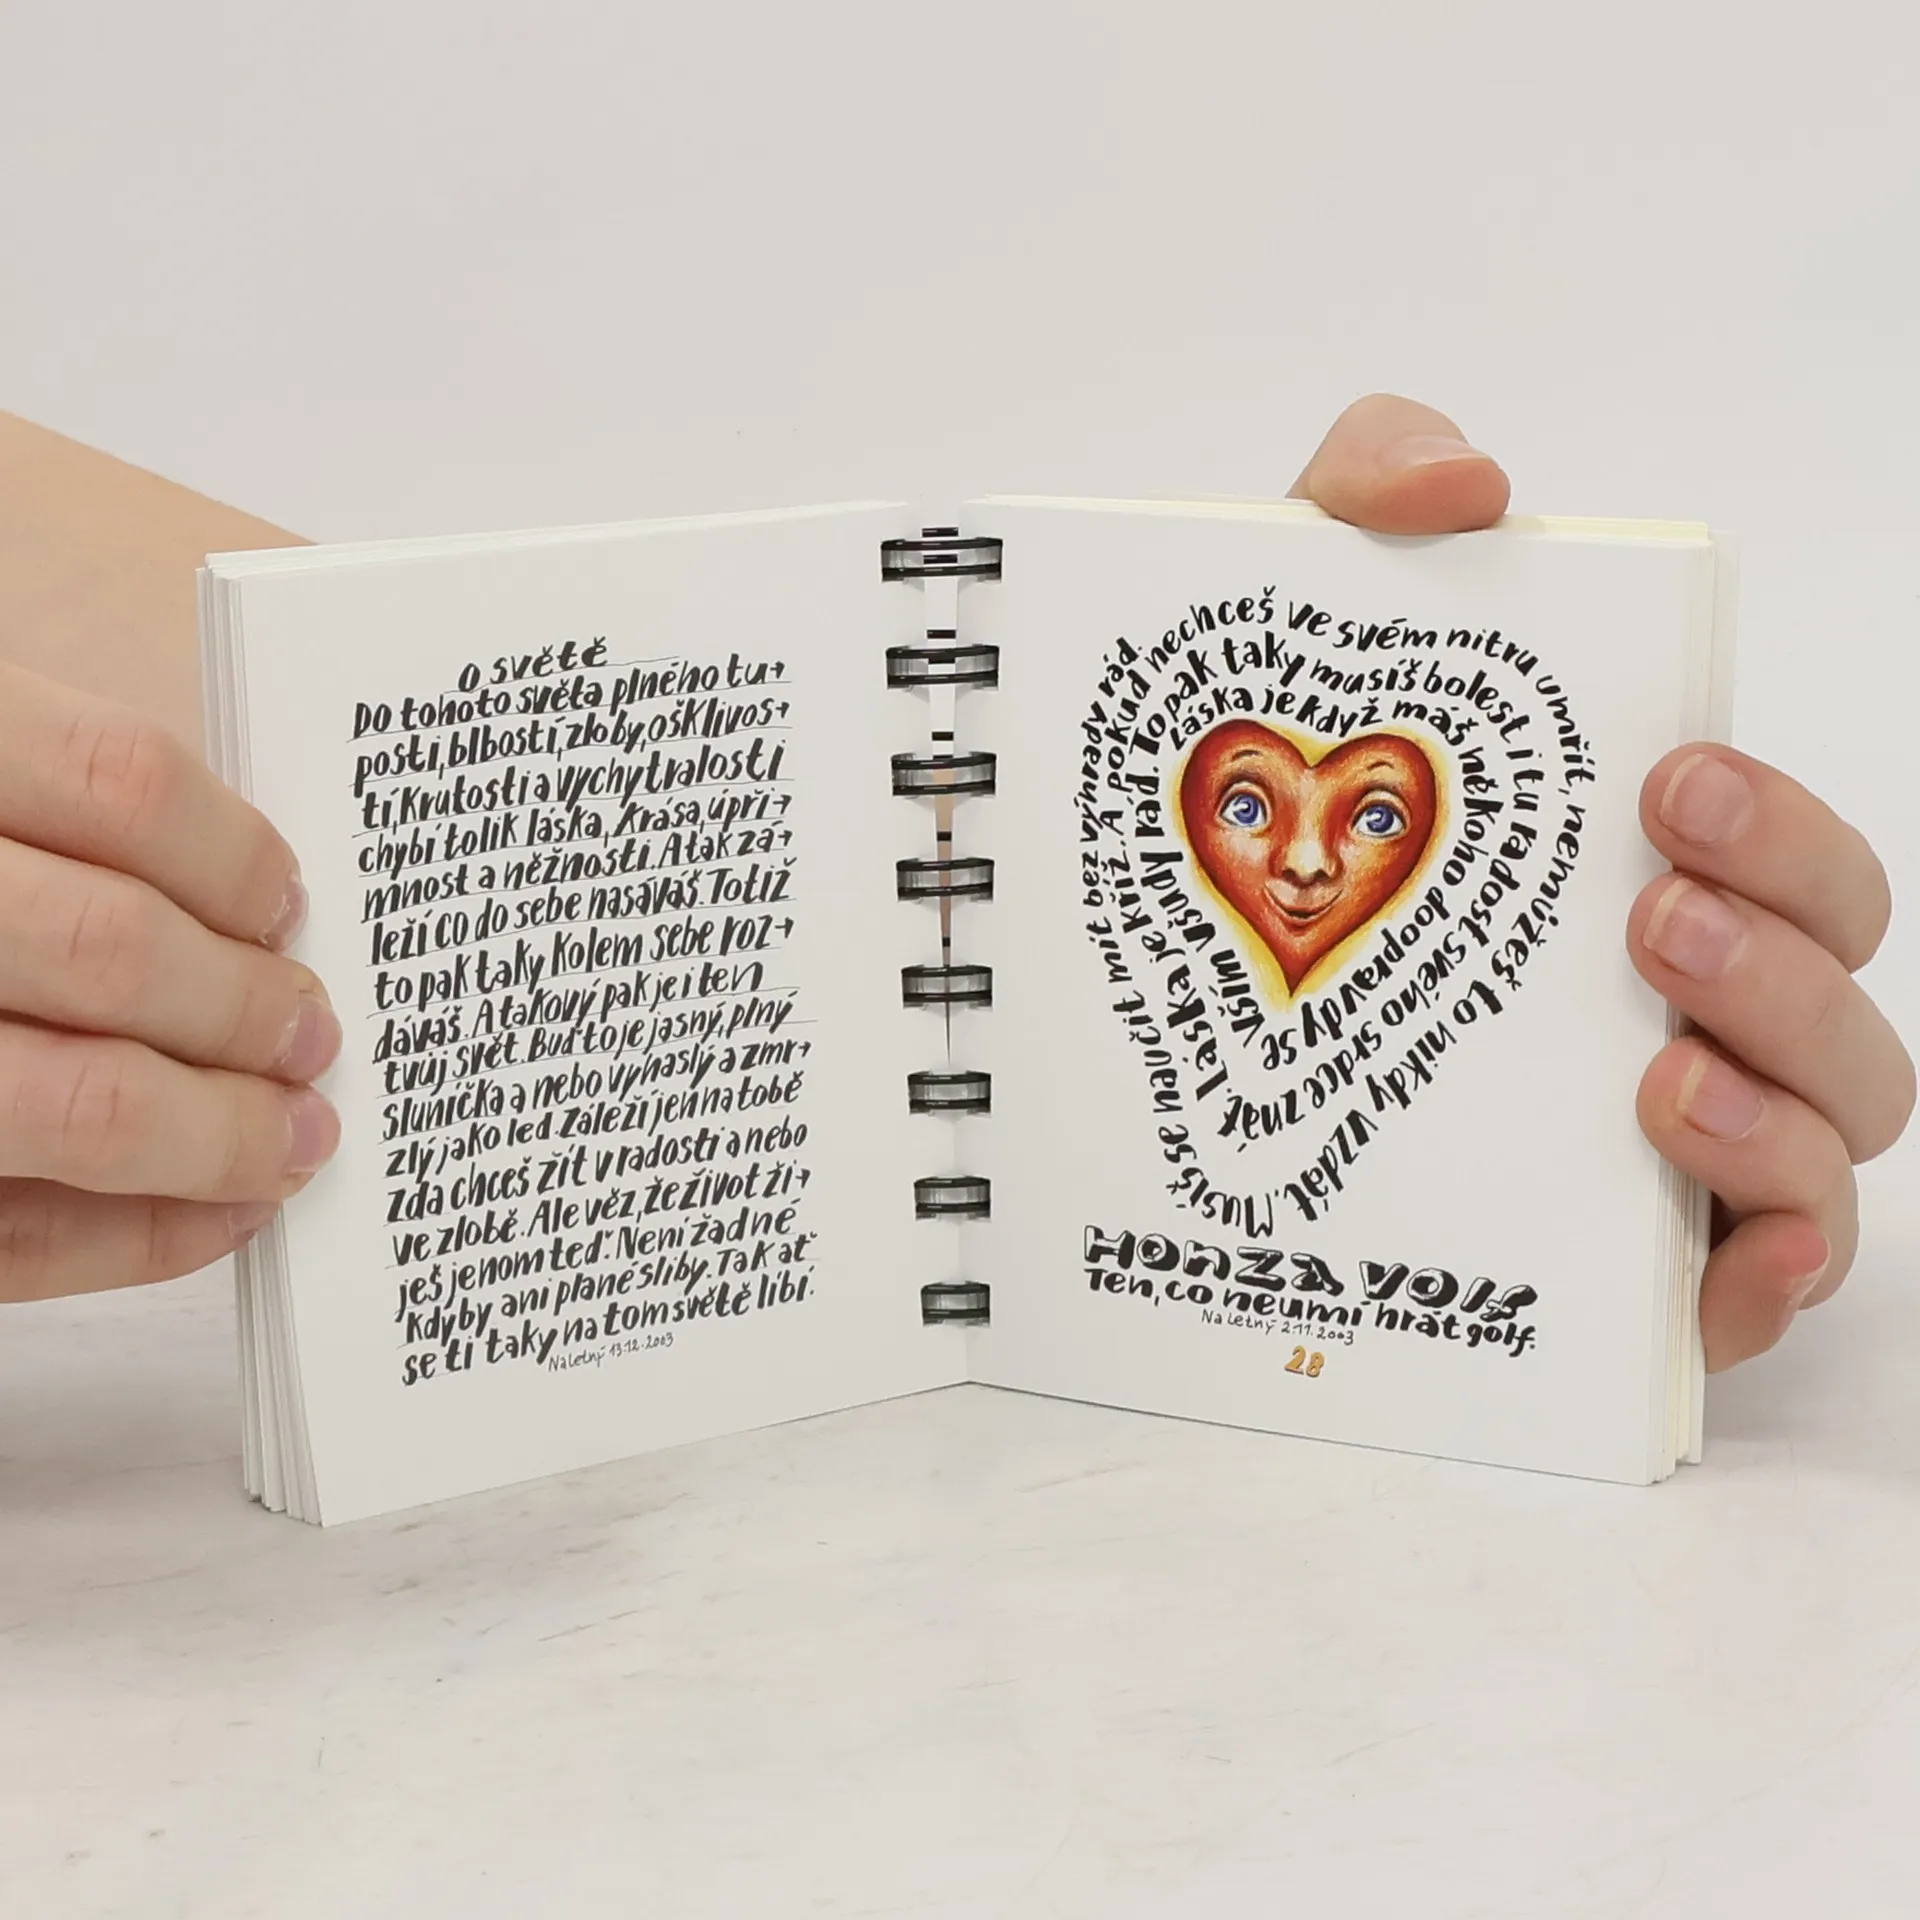 O světě
Do tohoto světa plného tu→
posti, blbosti, zloby, ošklivos→
ti, krutosti a vychytralosti
chybí tolik láska, krása, úpři→
mnost a něžnosti. A tak zá→
leží co do sebe nasáváš. Totiž
to pak taky kolem sebe roz→
dáváš. A takový pak je i ten
tvůj svět. Buďto je jasný, plný
sluníčka a nebo vyhaslý a zmr→
zlý jako led. Záleží jen na tobě
zda chceš žít v radosti a nebo
ve zlobě. Ale věz, že život ži→
ješ jenom teď. Není žádné
kdyby ani plané sliby. Tak ať
se ti taky na tom světě líbí.
Naletný 13.12.2003
Láska je když máš někoho doopravdy se vším všudy rád.
To pak taky musíš bolest i tu radost svého srdce znát. Láska je kříž. A pokud
nechceš ve svém nitru umřít, nemůžeš to nikdy vzdát. Musíš se naučit mít bez výhrady rád.
HONZA VOLF
Ten, co neumí hrát golf.
Naletný 2.11.2003
28